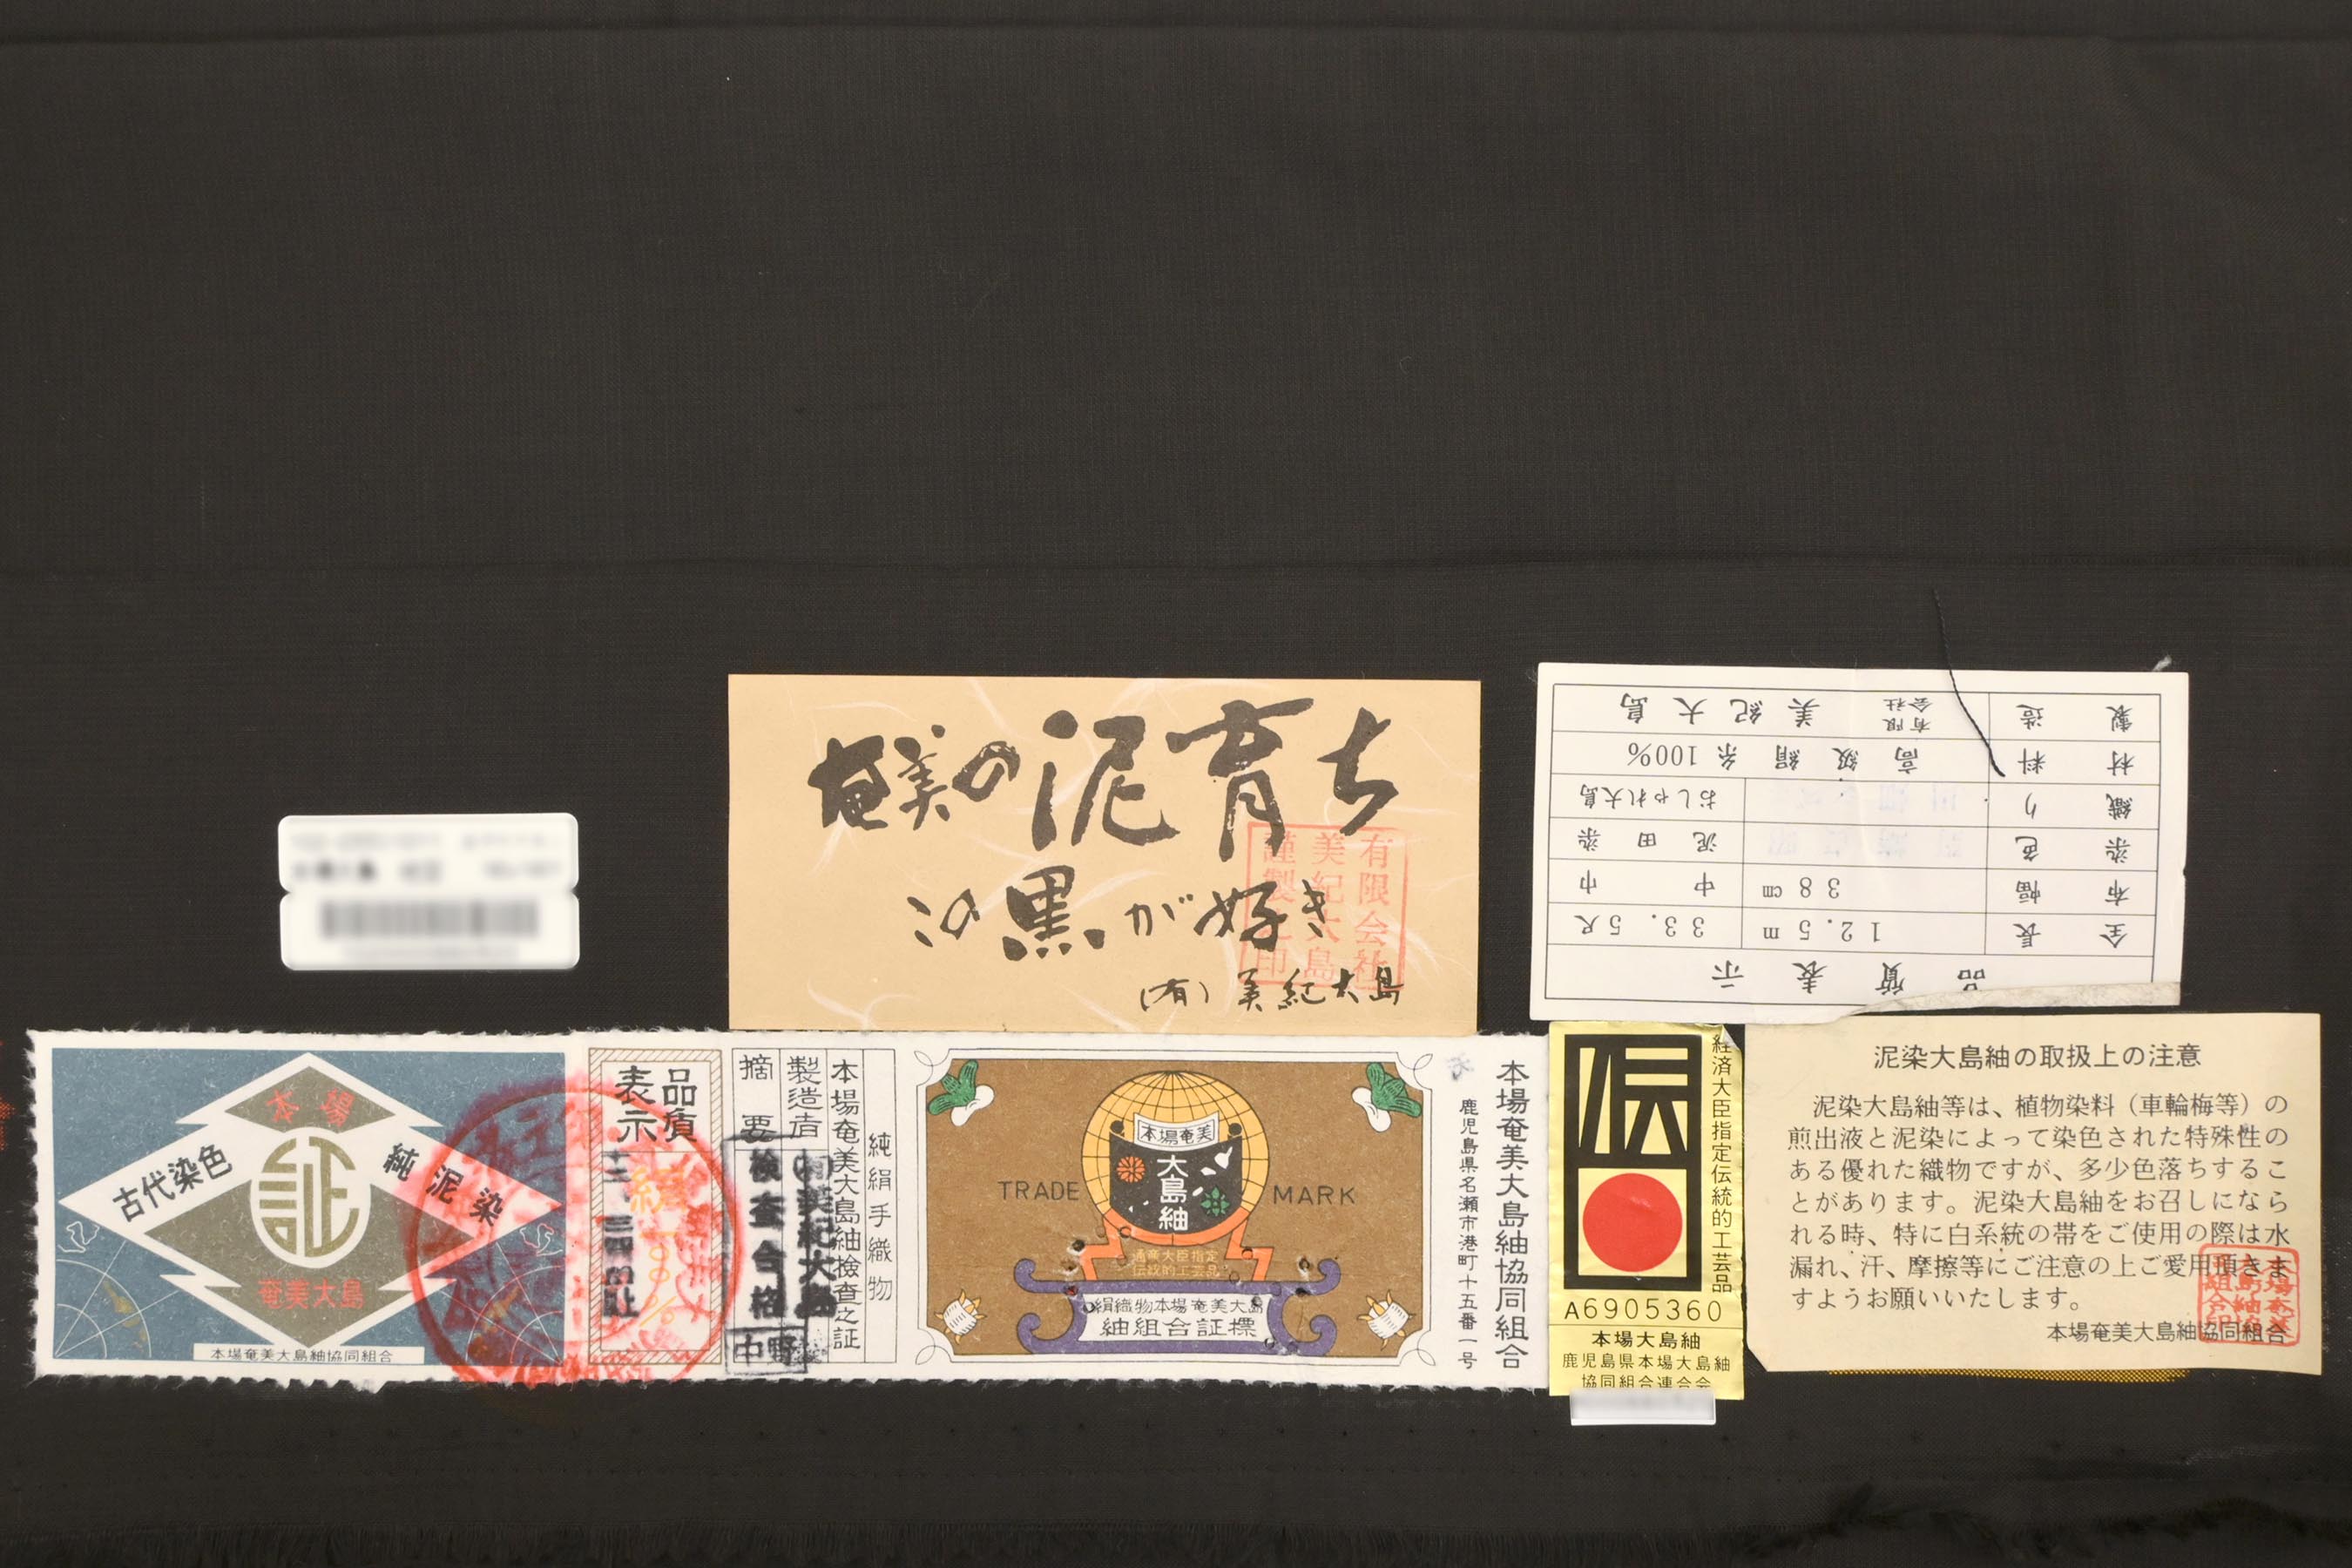 奄美の泥育ち
この黒が好き
(有)美紀大島
有限会社
美紀大島
謹製之印
品質表示
全長 12.5m 33.5尺
布幅 38cm 中巾
染色 泥田染
織り おしゃれ大島
材料 高級絹糸100%
製造 有限会社 美紀大島
本場
古代染色
純泥染
証
奄美大島
本場奄美大島紬協同組合
品質
表示
絹一〇〇%
純絹手織物
本場奄美大島紬検査之証
製造者
(有)美紀大島
摘要
検査合格
中野
TRADE MARK
本場奄美
大島紬
通産大臣指定
伝統的工芸品
絹織物本場奄美大島
紬組合証標
本場奄美大島紬協同組合
鹿児島県名瀬市港町十五番一号
伝
経済大臣指定伝統的工芸品
A6905360
本場大島紬
鹿児島県本場大島紬
協同組合連合会
泥染大島紬の取扱上の注意
泥染大島紬等は、植物染料(車輪梅等)の
煎出液と泥染によって染色された特殊性の
ある優れた織物ですが、多少色落ちするこ
とがあります。泥染大島紬をお召しになら
れる時、特に白系統の帯をご使用の際は水
漏れ、汗、摩擦等にご注意の上ご愛用頂きま
すようお願いいたします。
本場奄美大島紬協同組合